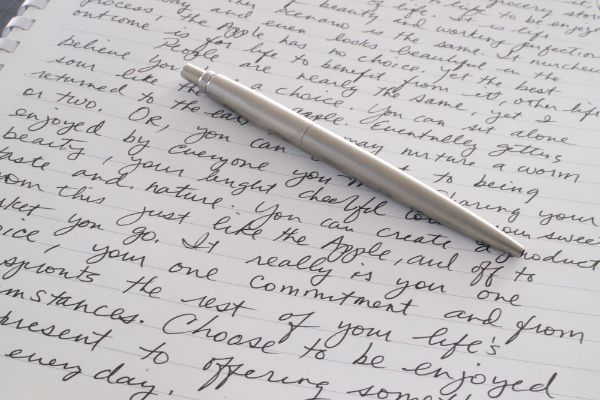 grocery store
life to be enjoyed
of life. It is life
scenario is the same. It nurchers
beauty and working perfection
day and even looks beautiful in the
process, the Apple has no choice. Yet the best
outcome is for life to benefit from it, other life
People are nearly the same, yet I
believe you a choice. You can sit alone
sour like the apple. Eventually getting
returned to the may nurture a worm
or two. Or, you can to being
enjoyed by everyone you Sharing your
beauty, your bright cheerful your sweet
taste and nature. You can create a product
from this just like the Apple, and off to
rket you go. It really is you one
oice, your one commitment and from
sprouts the rest of your life's
mstances. Choose to be enjoyed
present to offering some
every day.